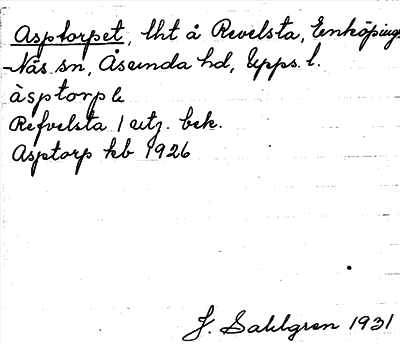 Asptorpet, lht å Revelsta, Enköpings
-Näs sn, Åsunda hd, Upps. l.
àsptorpe
Refvelsta / utg. bek.
Asptorp kb 1926
J. Sahlgren 1931